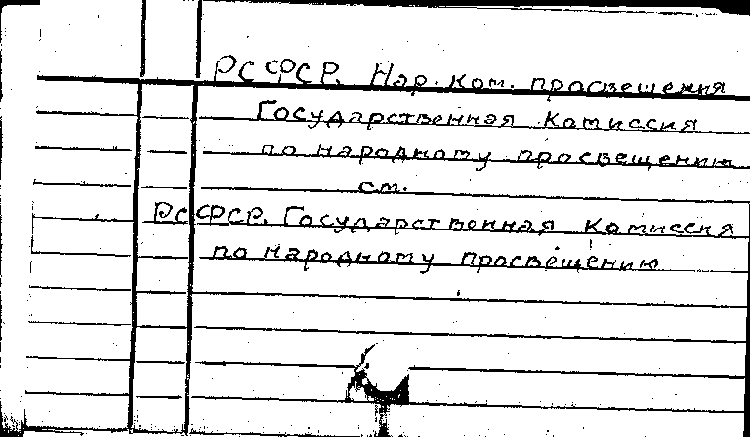 РСФСР. Нар. ком. просвещения
Государственная комиссия
по народному просвещению
см.
РСФСР. Государственная комиссия
по народному просвещению